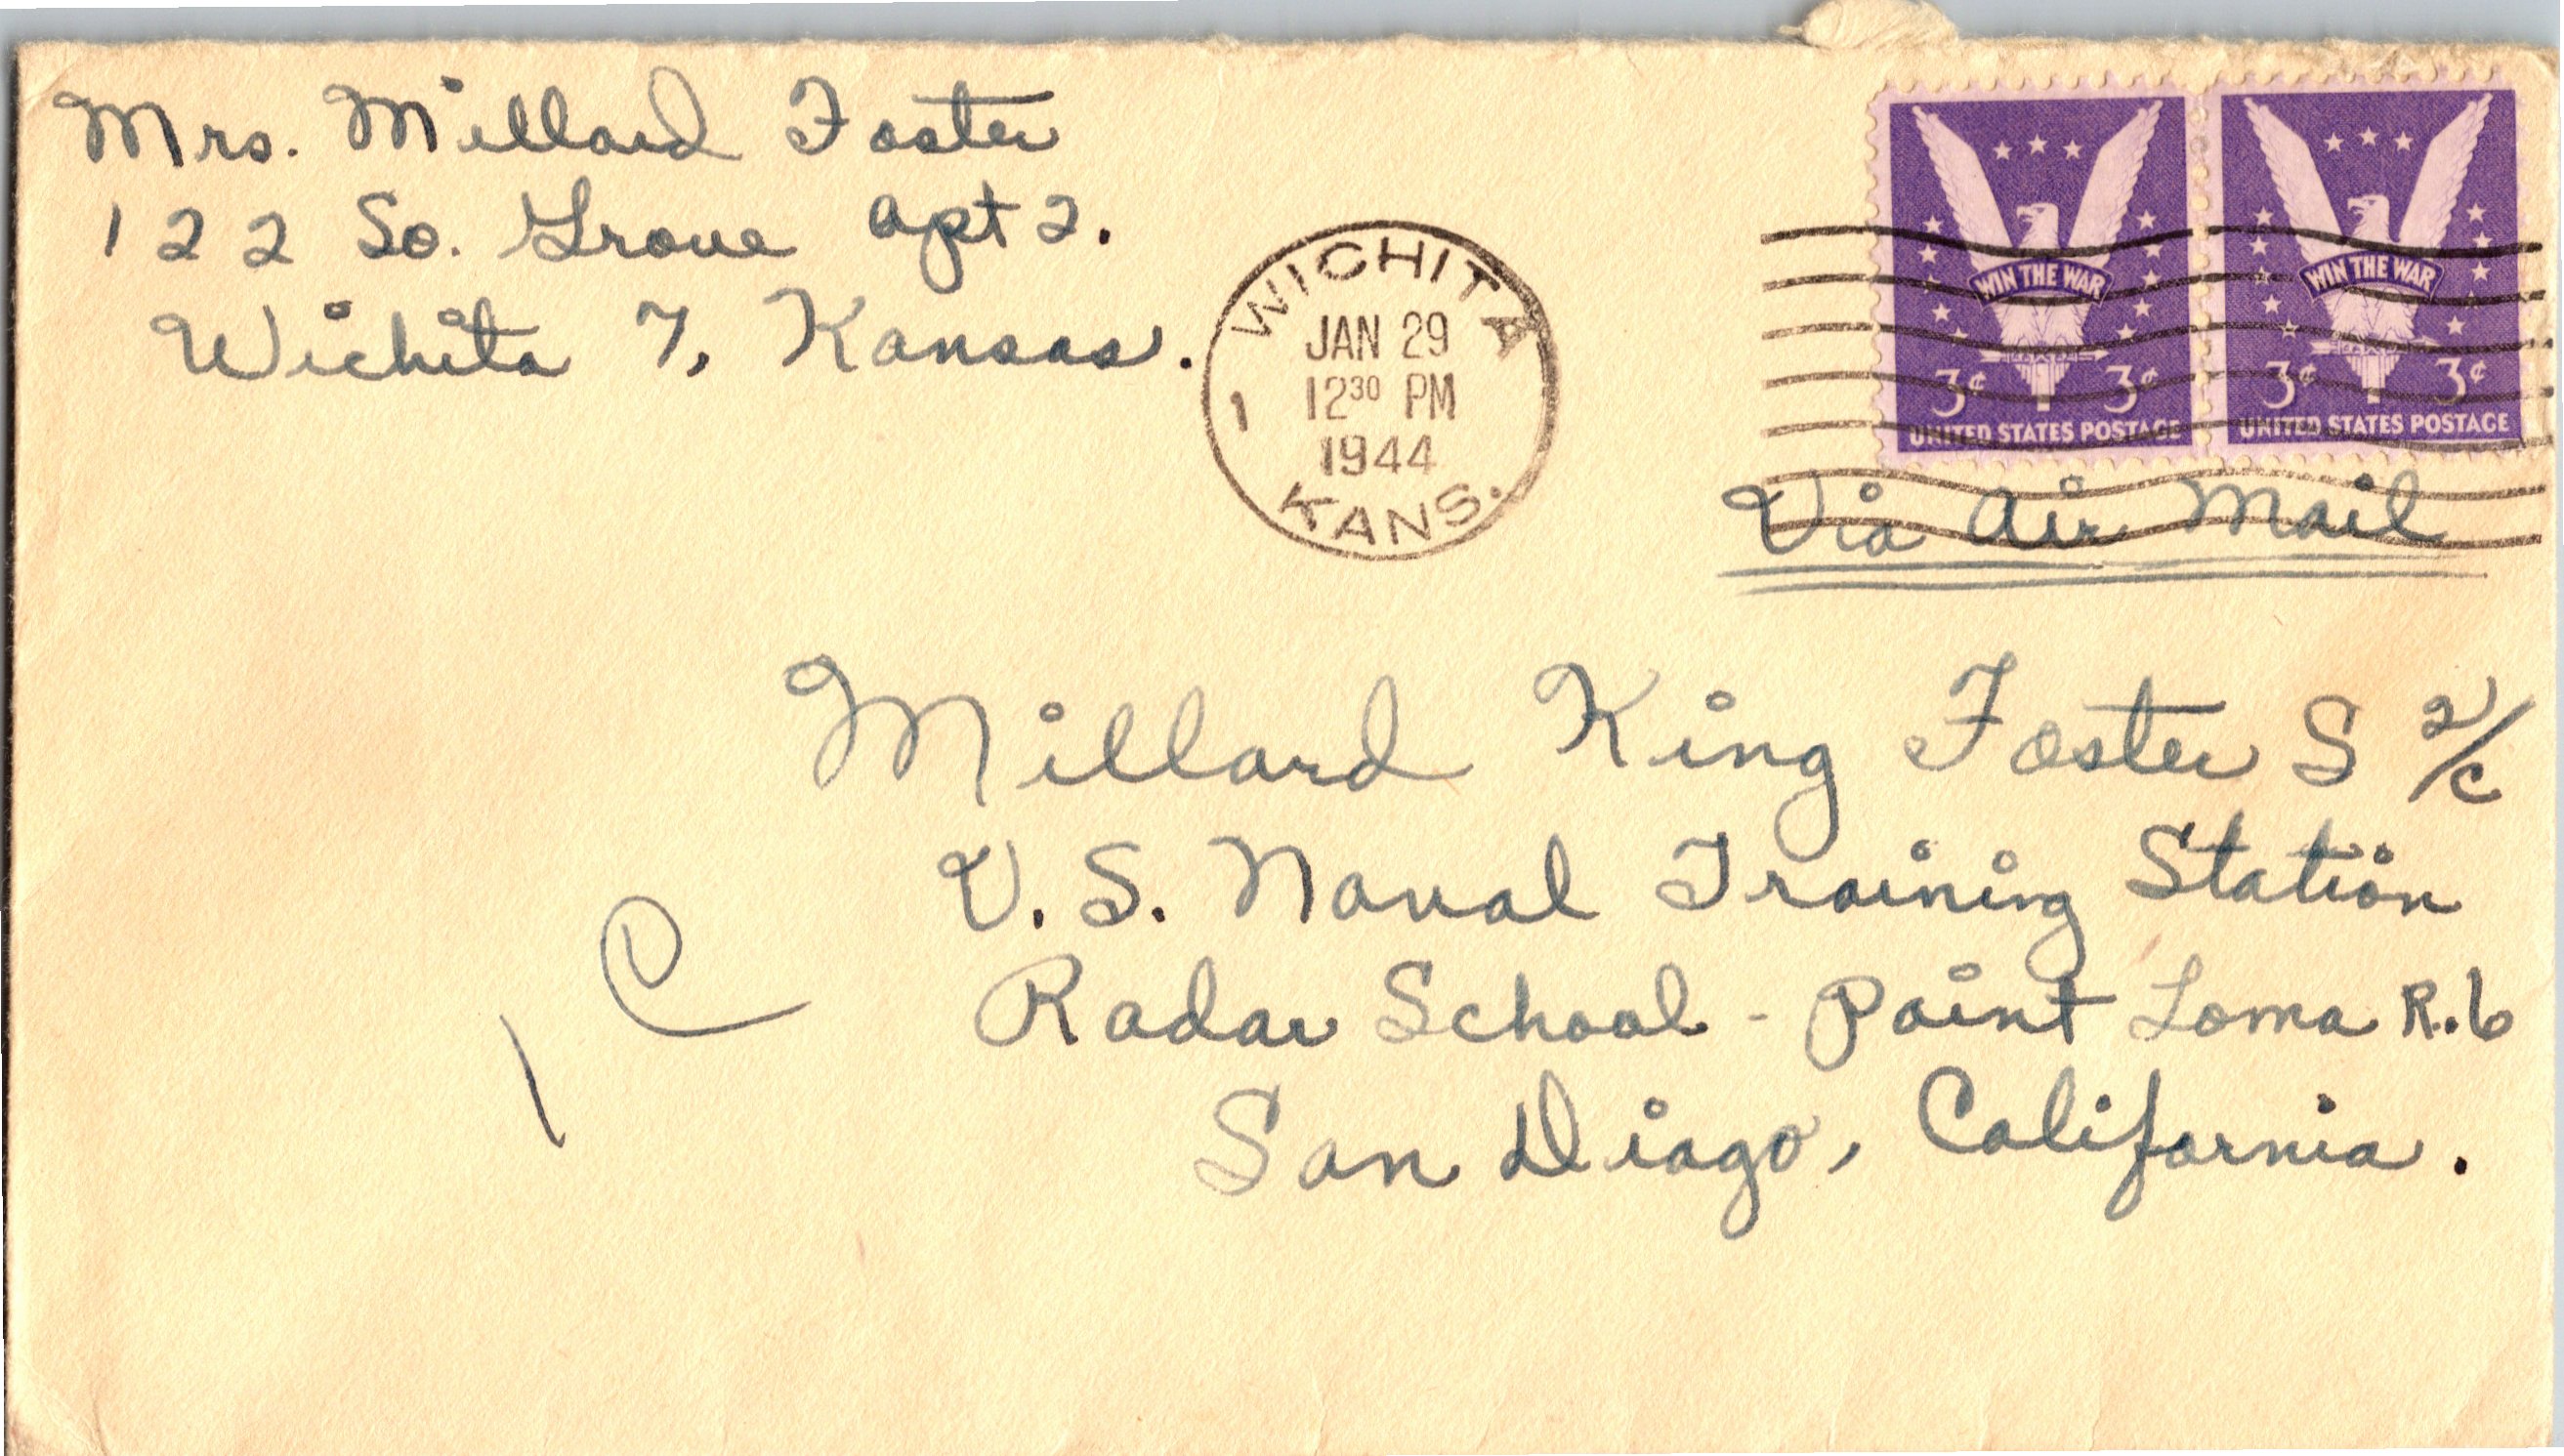 Mrs. Millard Foster
122 So. Grove Apt 2.
Wichita 7, Kansas.
WICHITA
JAN 29
1 12³⁰ PM
1944
KANS.
WIN THE WAR
3¢ 3¢
UNITED STATES POSTAGE
WIN THE WAR
3¢ 3¢
UNITED STATES POSTAGE
Via Air Mail
Millard King Foster S 2/c
U. S. Naval Training Station
Radar School - Point Loma R.6
San Diago, California.
C